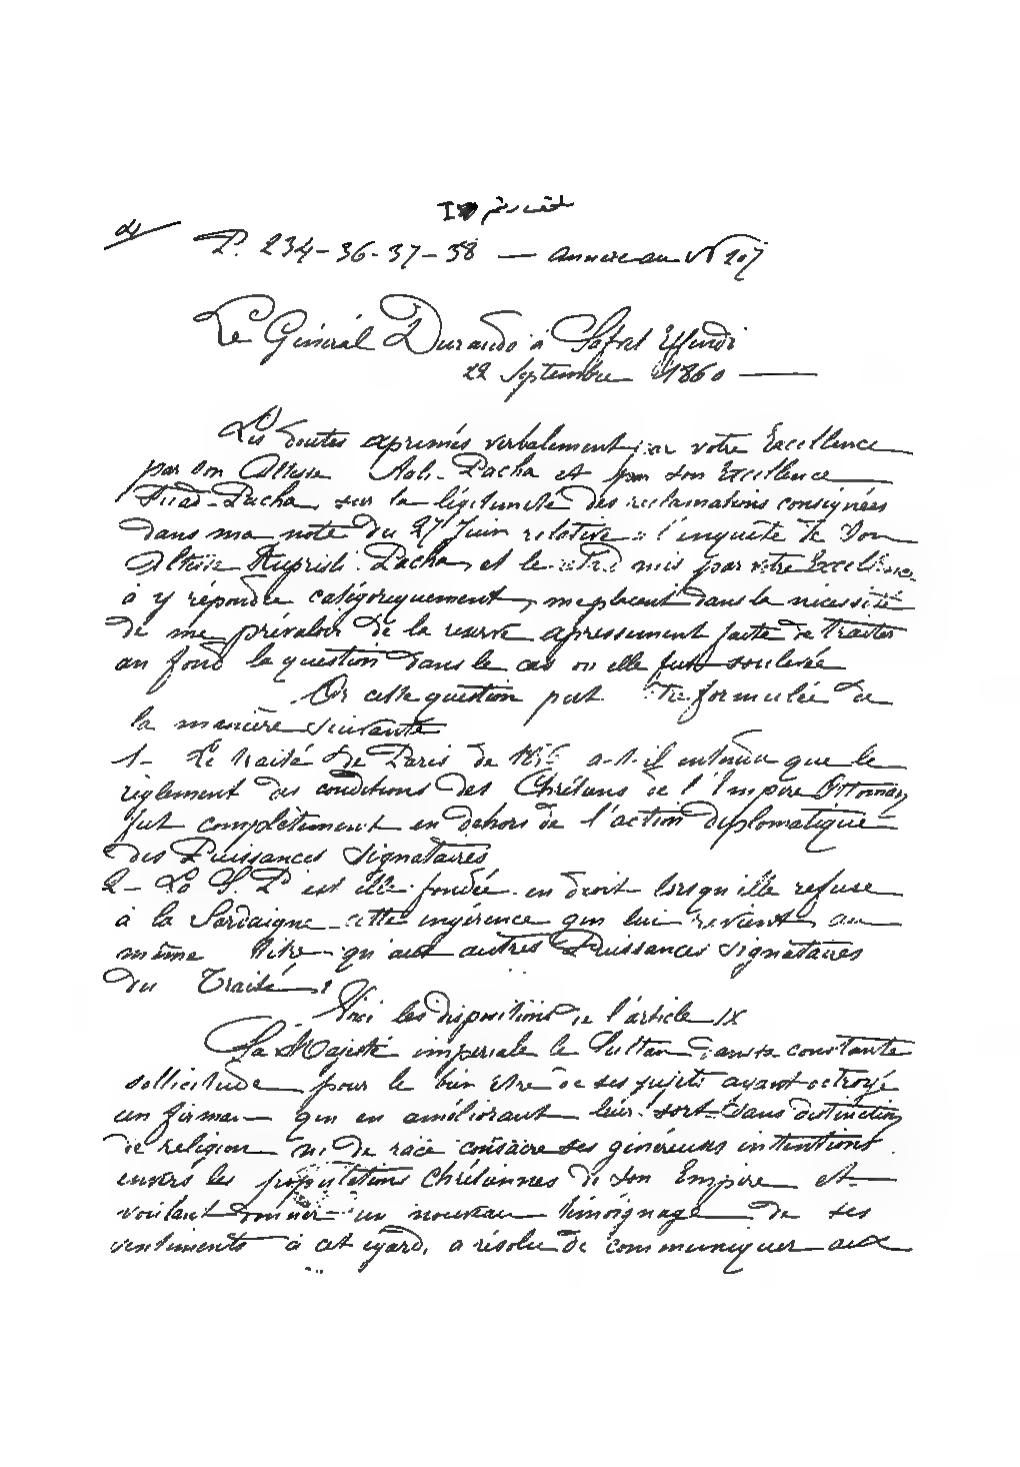 P. 234-36-37-38 — annexe au N 207
Le Général Durando à Safvet Effendi
22 Septembre 1860 —
Les doutes exprimés verbalement par votre Excellence
par Son Altesse Aali-Pacha et par son Excellence
Fuad-Pacha, sur la légitimité des réclamations consignées
dans ma note du 27 Juin relative à l'enquête de Son
Altesse Kuprisli-Pacha, et le retard mis par votre Excellence
à y répondre catégoriquement, me placent dans la nécessité
de me prévaloir de la reserve expressement faite de traiter
au fond la question dans le cas ou elle fut soulevée
Or cette question peut être formulée de
la manière suivante
1- Le traité de Paris de 1856 a-t-il entendu que le
règlement des conditions des Chrétiens de l'Empire Ottoman
fut complètement en dehors de l'action diplomatique
des Puissances signataires
2- La S. P. est elle fondée en droit lorsqu'elle refuse
à la Sardaigne cette ingérence qui lui revient au
même titre qu'aux autres Puissances signataires
du Traité?
Voici les dispositions de l'article IX
Sa Majesté impériale le Sultan dans sa constante
sollicitude pour le bien être de ses sujets ayant octroyé
un firman qui en améliorant leur sort sans distinction
de religion ni de race consacre ses généreuses intentions
envers les populations Chrétiennes de son Empire et
voulant donner un nouveau témoignage de ses
sentiments à cet égard, a résolu de communiquer aux